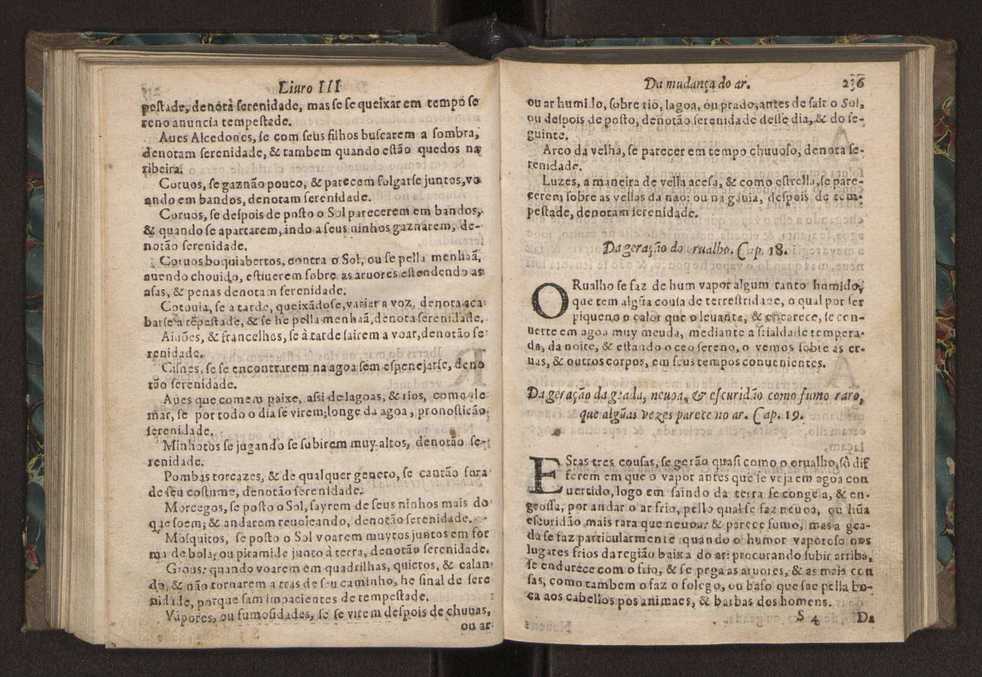 Liuro III
pestade, denota serenidade, mas se se queixar em tempo se
reno anuncia tempestade.
Aues Alcedones, se com seus filhos buscarem a sombra,
denotam serenidade, & tambem quando estão quedos na
ribeira.
Coruos, se gaznão pouco, & parecem folgarse juntos, vo
ando em bandos, denotam serenidade.
Coruos, se despois de posto o Sol parecerem em bandos,
& quando se apartarem, indo a seus ninhos gaznarem, de-
notão serenidade.
Coruos boquiabertos, contra o Sol, ou se pella menhaã,
auendo chouido, estiuerem sobre as aruores estendendo as
asas, & penas denotam serenidade.
Cotouia, se a tarde, queixãdose, variar a voz, denota aca
barse a tẽpestade, & se he pella menhaã, denota serenidade.
Aiuões, & francelhos, se à tarde sairem a voar, denotão se-
renidade.
Cisnes, se se encontrarem na agoa sem espenejarse, deno
tão serenidade.
Aues que comem paixe, assi de lagoas, & rios, como de
mar, se por todo o dia se virem, longe da agoa, pronosticão
serenidade.
Minhotos se jugando se subirem muy altos, denotão se-
renidade.
Pombas torcazes, & de qualquer genero, se cantão fora
de seu costume, denotão serenidade.
Morcegos, se posto o Sol, sayrem de seus ninhos mais do
que soem; & andarem reuoleando, denotão serenidade.
Mosquitos, se posto o Sol voarem muytos juntos em for
ma de bola, ou piramide junto à terra, denotão serenidade.
Grous: quando voarem em quadrilhas, quietos, & calan
do, & não tornarem a tras de seu caminho, he sinal de sere
nidade, porque sam impacientes de tempestade.
Vapores, ou fumosidades, se se virem despois de chuuas,
ou ar
Da mudança do ar. 236
ou ar humido, sobre rio, lagoa, ou prado, antes de sair o Sol,
ou despois de posto, denotão serenidade desse dia, & do se-
guinte.
Arco da velha, se parecer em tempo chuuoso, denota se-
renidade.
Luzes, a maneira de vella acesa, & como estrella, se pare-
cerem sobre as vellas da nao: ou na gauia, despois de tem-
pestade, denotam serenidade.
Da geração do orualho. Cap. 18.
ORualho se faz de hum vapor algum tanto humido,
que tem algũa cousa de terrestridade, o qual por ser
piqueno o calor que o leuanta, & encarece, se con-
uerte em agoa muy meuda, mediante a frialdade tempera-
da, da noite, & estando o ceo sereno, o vemos sobre as er-
uas, & outros corpos, em seus tempos conuenientes.
Da geração da geada, neuoa, & escuridão como fumo raro,
que algũas vezes parece no ar. Cap. 19.
EStas tres cousas, se gerão quasi como o orualho, só dif
ferem em que o vapor antes que se veja em agoa con
uertido, logo em saindo da terra se congela, & en-
grossa, por andar o ar frio, pello qual se faz neuoa, ou hũa
escuridão mais rara que neuoa: & parece fumo, mas a gea-
da se faz particularmente quando o humor vaporoso nos
lugares frios da região baixa do ar: procurando subir arriba,
se endurece com o frio, & se pega as aruores, & as mais cou
sas, como tambem o faz o folego, ou bafo que sae pella bo-
ca aos cabellos pos animaes, & barbas dos homens.
S 4 Da